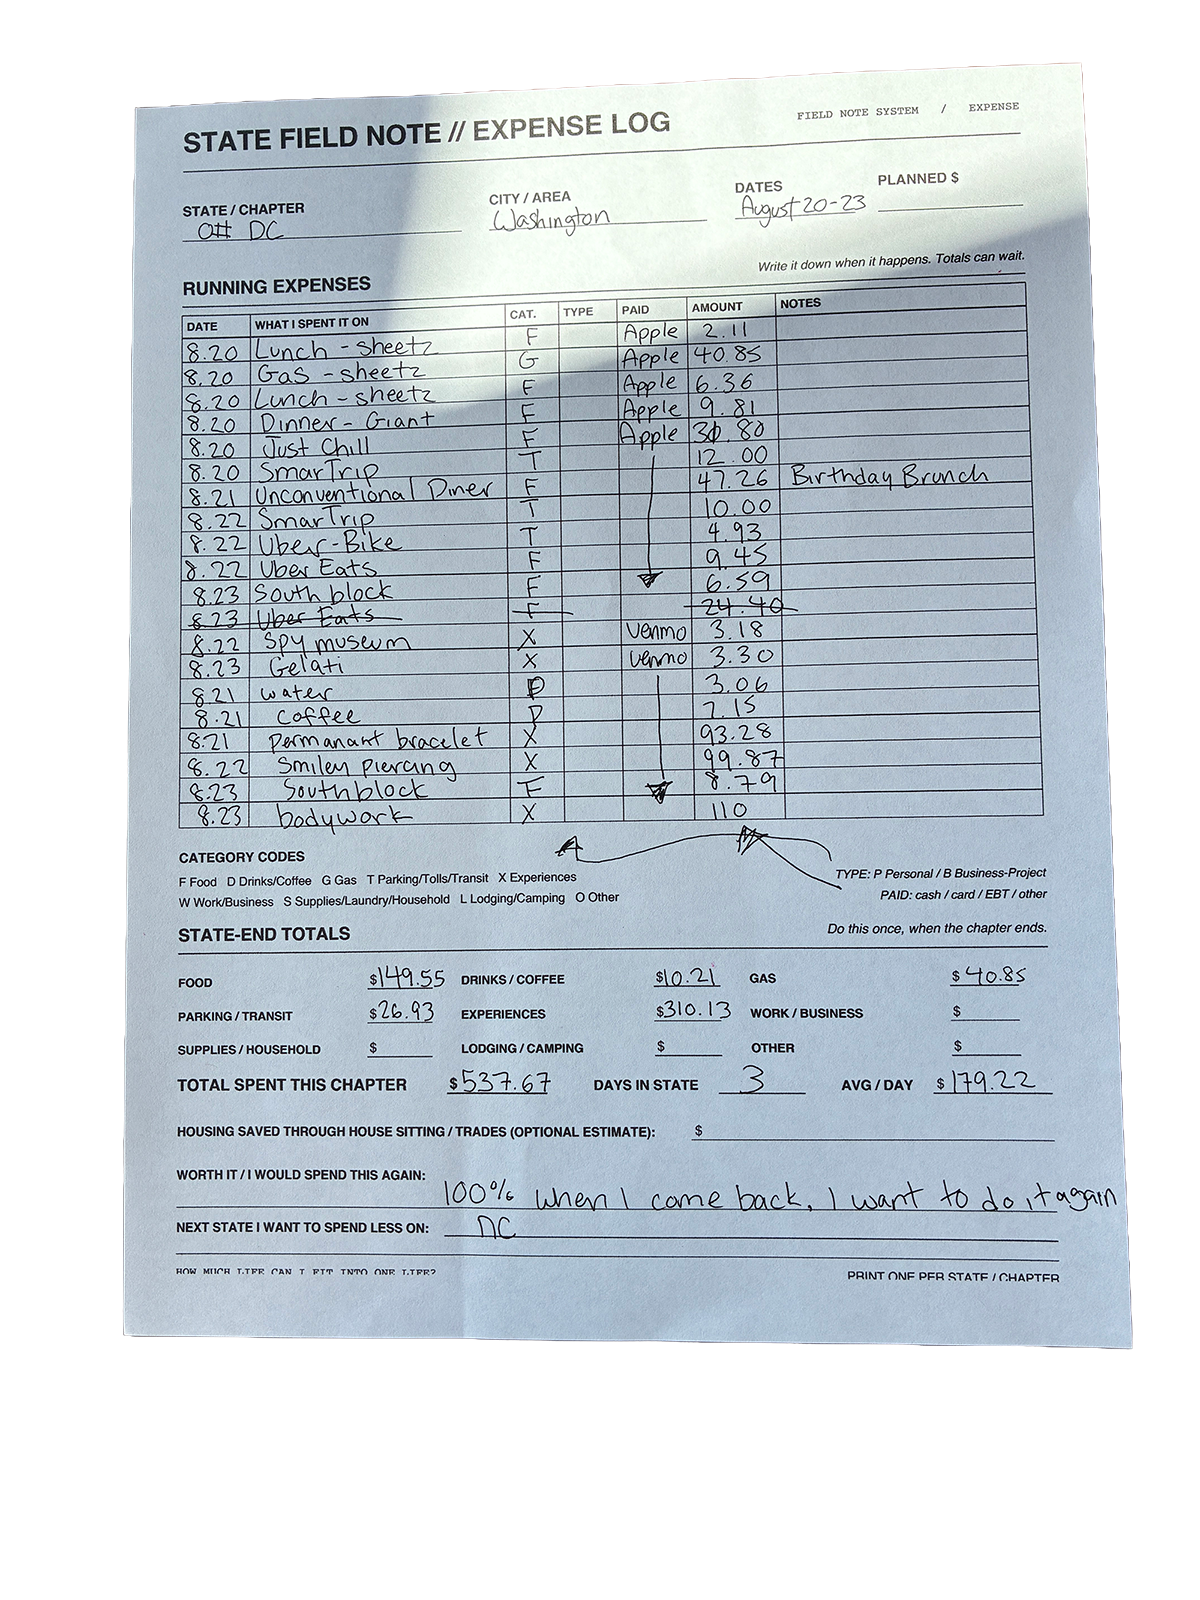 STATE FIELD NOTE // EXPENSE LOG
FIELD NOTE SYSTEM / EXPENSE
STATE / CHAPTER CITY / AREA DATES PLANNED $
DC Washington August 20-23
RUNNING EXPENSES
Write it down when it happens. Totals can wait.
DATE WHAT I SPENT IT ON CAT. TYPE PAID AMOUNT NOTES
8.20 Lunch - sheetz F Apple 2.11
8.20 Gas - sheetz G Apple 40.85
8.20 Lunch - sheetz F Apple 6.36
8.20 Dinner - Giant F Apple 9.81
8.20 Just Chill F Apple .80
8.20 SmarTrip T 12.00
8.21 Unconventional Diner F 47.26 Birthday Brunch
8.22 SmarTrip T 10.00
8.22 Uber-Bike T 4.93
8.22 Uber Eats F 9.45
8.23 South block F 6.59
8.23 Uber Eats F 24.40
8.22 Spy museum X Venmo 3.18
8.23 Gelati X Venmo 3.30
8.21 water D 3.06
8.21 coffee D 7.15
8.21 permanant bracelet X 93.28
8.22 Smiley piercing X 99.87
8.23 Southblock F 8.79
8.23 bodywork X 110
CATEGORY CODES
F Food D Drinks/Coffee G Gas T Parking/Tolls/Transit X Experiences
W Work/Business S Supplies/Laundry/Household L Lodging/Camping O Other
TYPE: P Personal / B Business-Project
PAID: cash / card / EBT / other
STATE-END TOTALS
Do this once, when the chapter ends.
FOOD $149.55 DRINKS / COFFEE $10.21 GAS $40.85
PARKING / TRANSIT $26.93 EXPERIENCES $310.13 WORK / BUSINESS $
SUPPLIES / HOUSEHOLD $ LODGING / CAMPING $ OTHER $
TOTAL SPENT THIS CHAPTER $537.67 DAYS IN STATE 3 AVG / DAY $179.22
HOUSING SAVED THROUGH HOUSE SITTING / TRADES (OPTIONAL ESTIMATE): $
WORTH IT / I WOULD SPEND THIS AGAIN: 100% when I come back, I want to do it again
NEXT STATE I WANT TO SPEND LESS ON: DC
HOW MUCH LIFE CAN I FIT INTO ONE LIFE?
PRINT ONE PER STATE / CHAPTER